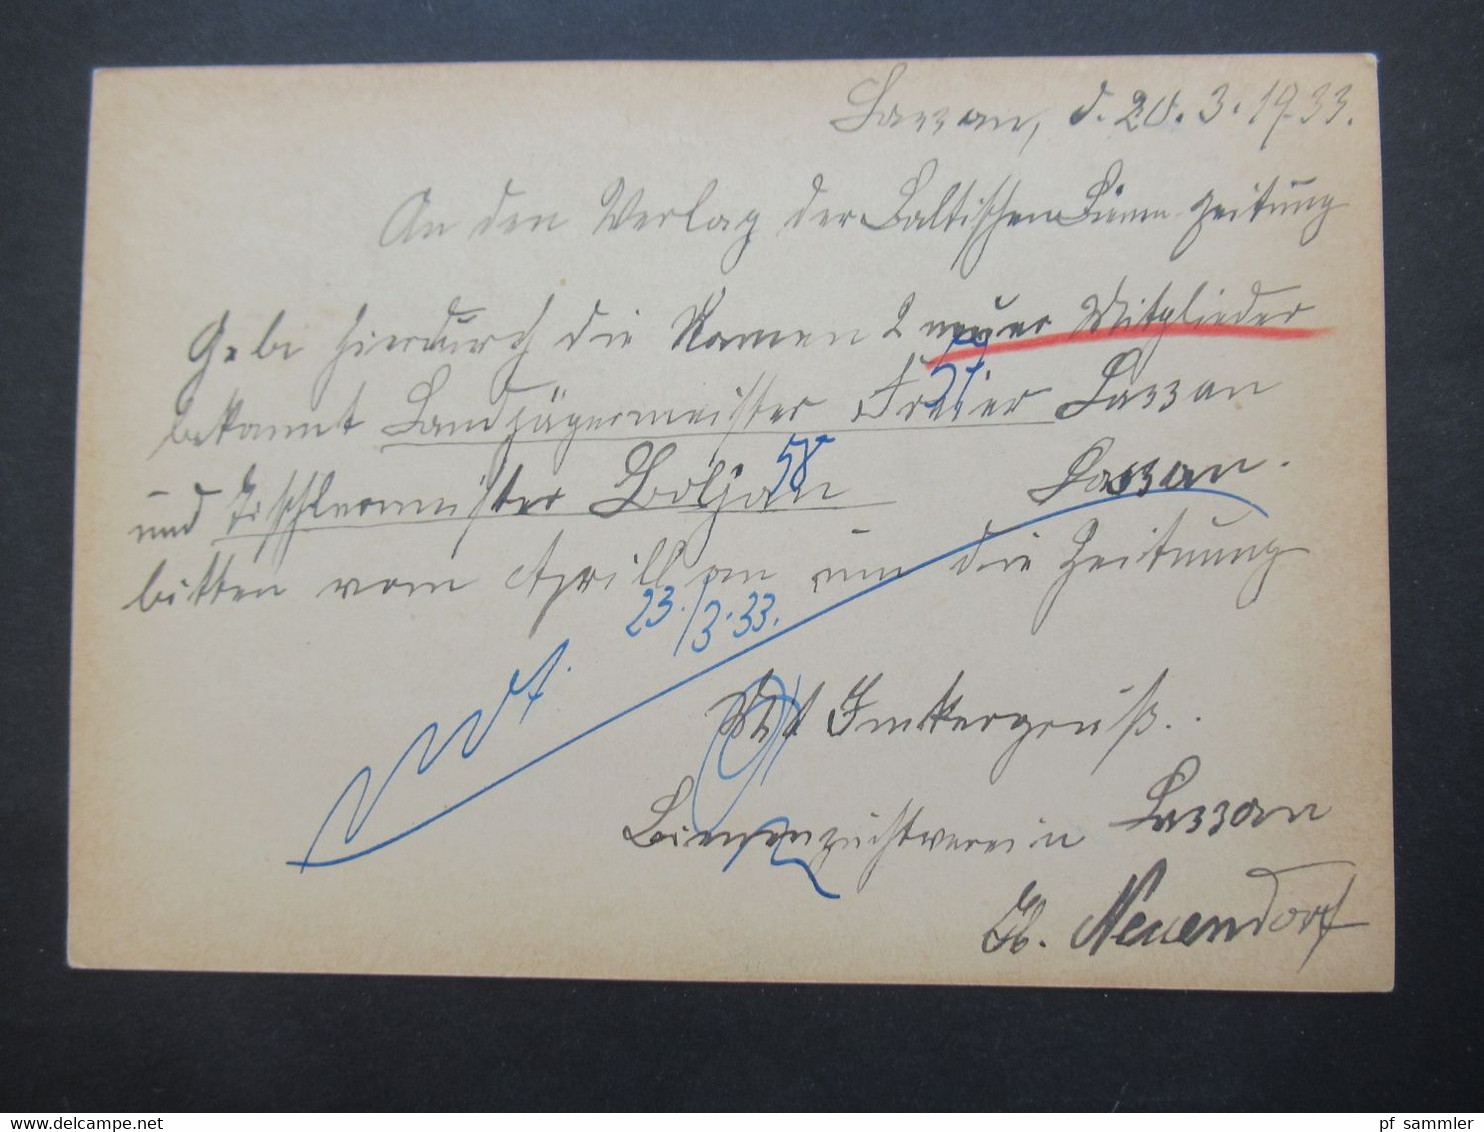 Lassan, d. 20.3.1933.
An den Verlag der Baltischen Bienen Zeitung
Gebe hierdurch die Namen 2 neuer Mitglieder
bekannt Landjägermeister Freier Lassan
57
und Tischlermeister Boljan Lassan.
58
bitten vom Aprill an um die Zeitung
23./3.33.
Mit Imkergruß.
Bienenzuchtverein Lassan
Neuendorf
www.delcampe.net
pf_sammler